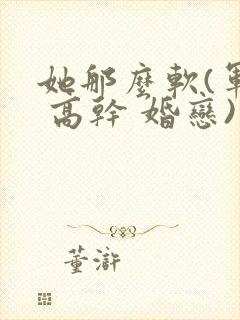 她那麼軟(軍
高幹 婚戀)
董滸